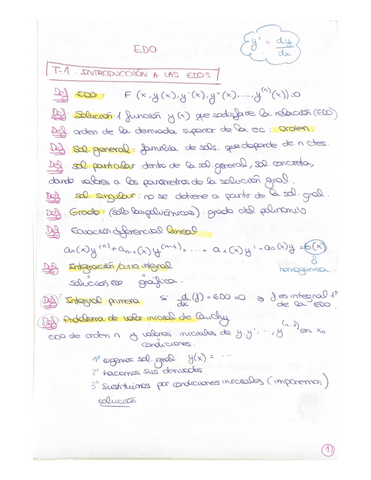 EDO
y' = dy/dx
T-1. INTRODUCCIÓN A LAS EDOS
Def EDO: F(x, y(x), y'(x), y''(x), ..., y^(n)(x)) = 0
Def Solución: 1 función y(x) que satisface la relación (EDO)
Def orden de la derivada superior de la ec: Orden.
Def Sol general: familia de sols. que depende de n ctes.
Def Sol particular: dentro de la sol general, sol concretas,
dando valores a los parámetros de la solución gral.
Def Sol singular: no se obtiene a partir de la sol gral.
Def. Grado: (solo las polinómicas): grado del polinomio
Def Ecuación diferencial lineal
an(x)y^(n) + an-1(x)y^(n-1) + ... + a1(x)y' + a0(x)y = b(x)
0
homogénea
Def Integración/curva integral
solución ED gráfica.
Def Integral primera si d/dx(f) = EDO = 0 ⇒ f es integral 1ª
de la EDO
Def Problema de valor inicial de Cauchy
EDO de orden n y valores iniciales de y, y', ..., y^(n-1) en x0
condiciones.
1º cogemos sol. gral y(x) = ...
2º hacemos sus derivadas
3º Sustituimos por condiciones iniciales (imponemos)
solución
1